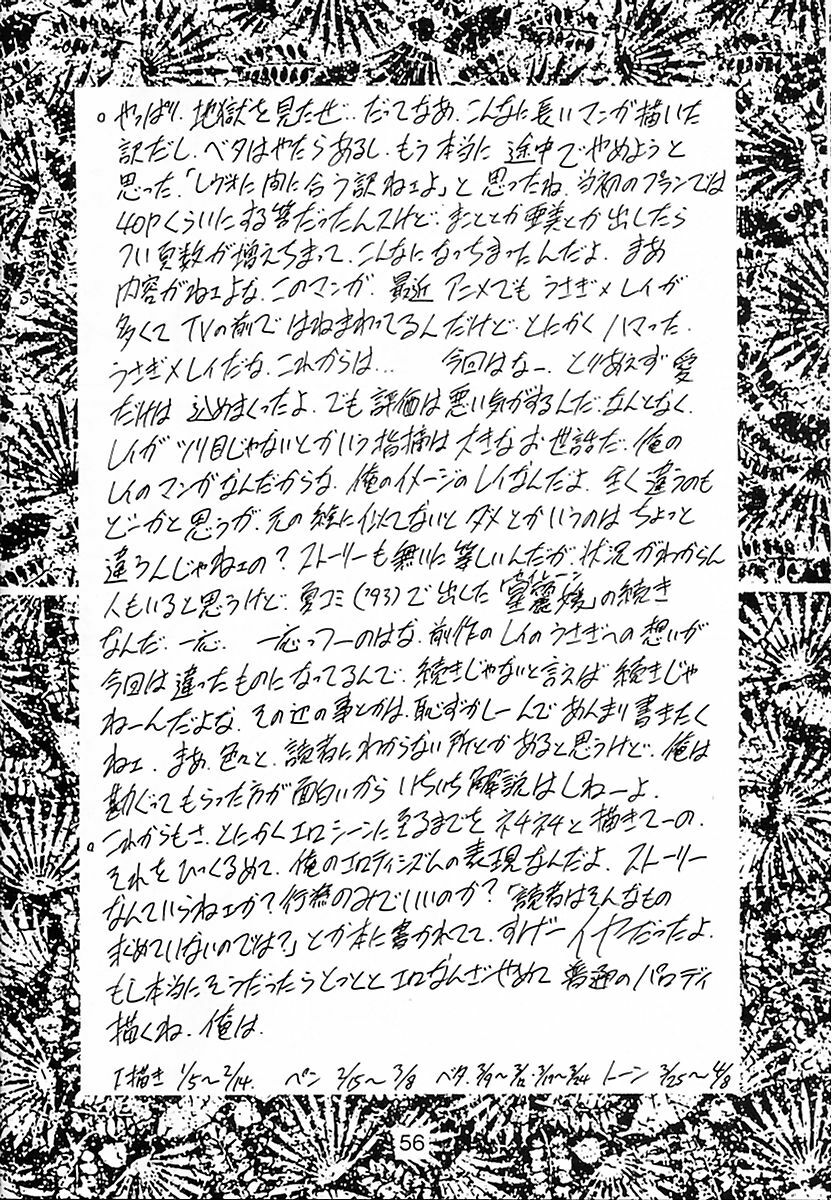 。やっぱり、地獄を見たぜ…だってなあ、こんなに長いマンガ描いた
訳だし、ベタはやたらあるし、もう本当に途中でやめようと
思った。「レヴォに間に合う訳ねェよ」と思ったね。当初のプランでは
40Pくらいにする筈だったんスけど、まこととか亜美とか出したら
つい頁数が増えちまって、こんなになっちまったんだよ。まあ
内容がねェよな、このマンガ。最近アニメでもうさぎ×レイが
多くてTVの前ではねまわってるんだけど、とにかくハマった。
うさぎ×レイだな、これからは… 今回はなー、とりあえず愛
だけは込めまくったよ。でも評価は悪い気がするんだ、なんとなく。
レイがツリ目じゃないとかいう指摘は大きなお世話だ。俺の
レイのマンガなんだからな。俺のイメージのレイなんだよ。全く違うのも
どーかと思うが、元の絵に似てないとダメとかいうのはちょっと
違うんじゃねェの?ストーリーも無いに等しいんだが、状況がわからん
人もいると思うけど、夏コミ('93)で出した「麗媛」の続き
なんだ、一応。 一応っつーのはな、前作のレイのうさぎへの想いが
今回は違ったものになってるんで、続きじゃないと言えば続きじゃ
ねーんだよな。その辺の事とかは、恥ずかしーんであんまり書きたく
ねェ。まあ、色々と、読者にわからない所とかあると思うけど、俺は
勘ぐってもらった方が面白いからいちいち解説はしねーよ。
。これからもさ、とにかくエロシーンに至るまでをネチネチと描きてーの。
それをひっくるめて、俺のエロティシズムの表現なんだよ。ストーリー
なんていらねェか?行為のみでいいのか?「読者はそんなもの
求めていないのでは?」とか本に書かれてて、すげーイヤだったよ。
もし本当にそうだったらとっととエロなんざやめて普通のパロディ
描くね、俺は。
下描き 1/5〜2/14. ペン 2/15〜3/8 ベタ 3/9〜3/12・3/17〜3/24 トーン 3/25〜4/8
56